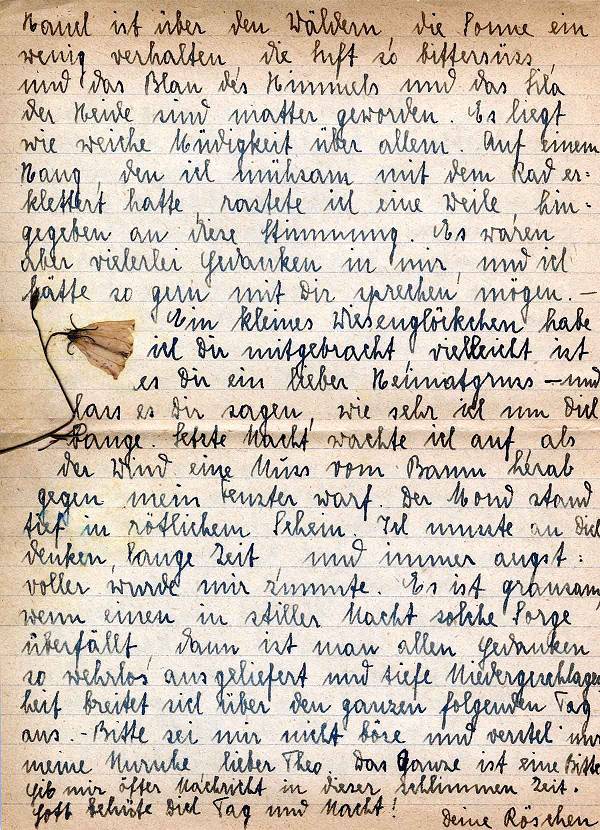 ist über den Wäldern, die Sonne ein
wenig verhalten, die Luft so bittersüss,
und das Blau des Himmels und das Lila
der Heide sind matter geworden. Es liegt
wie weiche Müdigkeit über allem. Auf einem
Hang, den ich mühsam mit dem Rad er-
klettert hatte, rastete ich eine Weile, hin-
gegeben an diese Stimmung. Es waren
aber vielerlei Gedanken in mir, und ich
hätte so gern mit Dir sprechen mögen. –
Ein kleines Wiesenglöckchen habe
ich Dir mitgebracht, vielleicht ist
es Dir ein lieber Heimatgruss – und
lass es Dir sagen, wie sehr ich um Dich
bange. Letzte Nacht wachte ich auf, als
der Wind eine Nuss vom Baum herab
gegen mein Fenster warf. Der Mond stand
tief in rötlichem Schein. Ich musste an Dich
denken, lange Zeit, und immer angst-
voller wurde mir zumute. Es ist grausam,
wenn einen in stiller Nacht solche Sorge
überfällt, dann ist man allen Gedanken
so wehrlos ausgeliefert und tiefe Niedergeschlagen
heit breitet sich über den ganzen folgenden Tag
aus. – Bitte sei mir nicht böse und
meine lieber Theo. Das Ganze ist eine Bitte
Gib mir öfter Nachricht in dieser schlimmen Zeit.
Gott behüte Dich Tag und Nacht!
Deine Röschen